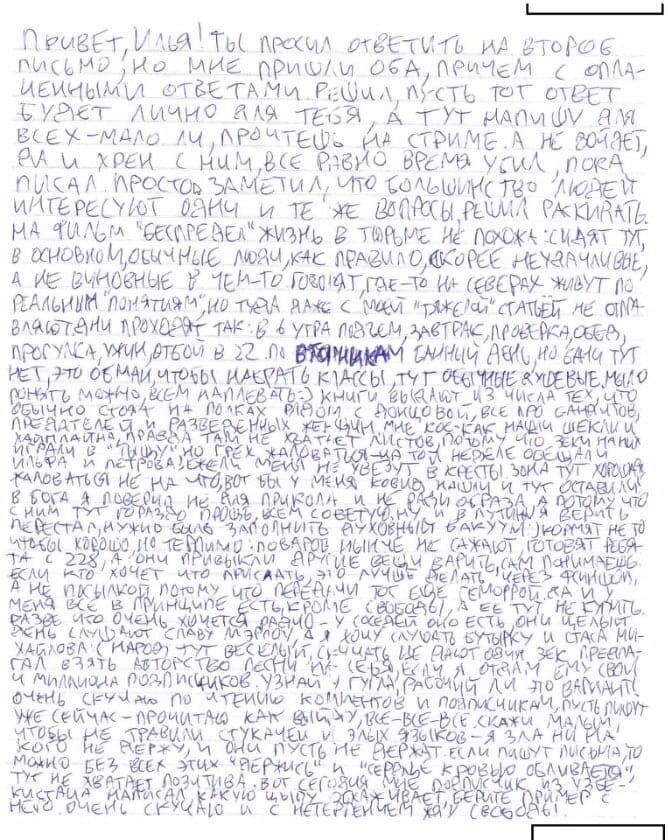 ПРИВЕТ, ИЛЬЯ! ТЫ ПРОСИЛ ОТВЕТИТЬ НА ВТОРОЕ
ПИСЬМО, НО МНЕ ПРИШЛИ ОБА, ПРИЧЕМ С ОПЛА-
ЧЕННЫМИ ОТВЕТАМИ. РЕШИЛ, ПУСТЬ ТОТ ОТВЕТ
БУДЕТ ЛИЧНО ДЛЯ ТЕБЯ, А ТУТ НАПИШУ ДЛЯ
ВСЕХ-МАЛО ЛИ, ПРОЧТЕШЬ НА СТРИМЕ. А НЕ ЗОЙДЕТ,
ДА И ХРЕН С НИМ, ВСЕ РАВНО ВРЕМЯ УБИЛ, ПОКА
ПИСАЛ. ПРОСТО ЗАМЕТИЛ, ЧТО БОЛЬШИНСТВО ЛЮДЕЙ
ИНТЕРЕСУЮТ ОДНИ И ТЕ ЖЕ ВОПРОСЫ, РЕШИЛ РАСКИДАТЬ.
НА ФИЛЬМ "БЕСПРЕДЕЛ" ЖИЗНЬ В ТЮРЬМЕ НЕ ПОХОЖА: СИДЯТ ТУТ,
В ОСНОВНОМ, ОБЫЧНЫЕ ЛЮДИ, КАК ПРАВИЛО, СКОРЕЕ НЕУДАЧЛИВЫЕ,
А НЕ ВИНОВНЫЕ В ЧЕМ-ТО. ГОВОРЯТ, ГДЕ-ТО НА СЕВЕРАХ ЖИВУТ ПО
РЕАЛЬНЫМ "ПОНЯТИЯМ", НО ТУДА ДАЖЕ С МОЕЙ "ТЯЖЕЛОЙ" СТАТЬЕЙ НЕ ОТПРА-
ВЛЯЮТ. ДНИ ПРОХОДЯТ ТАК: В 6 УТРА ПОДЪЕМ, ЗАВТРАК, ПРОВЕРКА, ОБЕД,
ПРОГУЛКА, УЖИН, ОТБОЙ В 22. ПО ВТОРНИКАМ БАННЫЙ ДЕНЬ, НО БАНИ ТУТ
НЕТ, ЭТО ОБМАН, ЧТОБЫ НАБРАТЬ КЛАССЫ, ТУТ ОБЫЧНЫЕ ДУШЕВЫЕ, МЫЛО
РОНЯТЬ МОЖНО, ВСЕМ НАПЛЕВАТЬ:) КНИГИ ВЫДАЮТ ИЗ ЧИСЛА ТЕХ, ЧТО
ОБЫЧНО СТОЯТ НА ПОЛКАХ РЯДОМ С ДОНЦОВОЙ, ВСЕ ПРО БАНДИТОВ,
ПРЕДАТЕЛЕЙ И РАЗВЕДЕННЫХ ЖЕНЩИН. МНЕ КОЕ-КАК НАШЛИ ШЕКЛИ И
ХАЙНЛАЙНА, ПРАВДА ТАМ НЕ ХВАТАЕТ ЛИСТОВ, ПОТОМУ ЧТО ЗЕКИ НА НИХ
ИГРАЛИ В НО ГРЕХ ЖАЛОВАТЬСЯ-НА ТОЙ НЕДЕЛЕ ОБЕЩАЛИ
ИЛЬФА И ПЕТРОВА, ЕЖЕЛИ МЕНЯ НЕ УВЕЗУТ В КРЕСТЫ. ЗОНА ТУТ ХОРОШАЯ,
ЖАЛОВАТЬСЯ НЕ НА ЧТО, ВОТ БЫ У МЕНЯ КОВИД НАШЛИ И ТУТ ОСТАВИЛИ
В БОГА Я ПОВЕРИЛ НЕ ДЛЯ ПРИКОЛА И НЕ РАДИ ОБРАЗА, А ПОТОМУ ЧТО
С НИМ ТУТ ГОРАЗДО ПРОЩЕ, ВСЕМ СОВЕТУЮ. НУ И В ПУТИНА ВЕРИТЬ
ПЕРЕСТАЛ, НУЖНО БЫЛО ЗАПОЛНИТЬ ДУХОВНЫЙ ВАКУУМ:) КОРМЯТ НЕ ТО
ЧТОБЫ ХОРОШО, НО ТЕРПИМО: ПОВАРОВ НЫНЧЕ НЕ САЖАЮТ, ГОТОВЯТ РЕБЯ-
ТА С 228, А ОНИ ПРИВЫКЛИ ДРУГИЕ ВЕЩИ ВАРИТЬ, САМ ПОНИМАЕШЬ.
ЕСЛИ КТО ХОЧЕТ ЧТО ПРИСЛАТЬ, ЭТО ЛУЧШЕ ДЕЛАТЬ ЧЕРЕЗ ФСИНШОП,
А НЕ ПОСЫЛКОЙ, ПОТОМУ ЧТО ПЕРЕДАЧИ ТОТ ЕЩЕ ГЕМОРРОЙ. ДА И У
МЕНЯ ВСЕ В ПРИНЦИПЕ ЕСТЬ, КРОМЕ СВОБОДЫ, А ЕЕ ТУТ НЕ КУПИТЬ.
РАЗВЕ ЧТО ОЧЕНЬ ХОЧЕТСЯ РАДИО-У СОСЕДЕЙ ОНО ЕСТЬ, ОНИ ЦЕЛЫЙ
ДЕНЬ СЛУШАЮТ СЛАВУ МЭРЛОУ, А Я ХОЧУ СЛУШАТЬ БУТЫРКУ И СТАСА МИ-
ХАЙЛОВА:( НАРОД ТУТ ВЕСЕЛЫЙ, СКУЧАТЬ НЕ ДАЮТ. ОДИН ЗЕК ПРЕДЛА-
ГАЛ ВЗЯТЬ АВТОРСТВО ПЕСНИ НА СЕБЯ, ЕСЛИ Я ОТДАМ ЕМУ СВОИ
4 МИЛЛИОНА ПОДПИСЧИКОВ. УЗНАЙ У ГУГЛА, РАБОЧИЙ ЛИ ЭТО ВАРИАНТ.
ОЧЕНЬ СКУЧАЮ ПО ЧТЕНИЮ КОММЕНТОВ И ПОДПИСЧИКАМ, ПУСТЬ ПИШУТ
УЖЕ СЕЙЧАС-ПРОЧИТАЮ КАК ВЫЙДУ, ВСЕ-ВСЕ-ВСЕ. СКАЖИ МАЛЫМ,
ЧТОБЫ НЕ ТРАВИЛИ СТУКАЧЕЙ И ЗЛЫХ ЯЗЫКОВ-Я ЗЛА НИ НА
КОГО НЕ ДЕРЖУ, И ОНИ ПУСТЬ НЕ ДЕРЖАТ. ЕСЛИ ПИШУТ ПИСЬМА, ТО
МОЖНО БЕЗ ВСЕХ ЭТИХ "ДЕРЖИСЬ" И "СЕРДЦЕ КРОВЬЮ ОБЛИВАЕТСЯ",
ТУТ НЕ ХВАТАЕТ ПОЗИТИВА. ВОТ СЕГОДНЯ МНЕ ПОДПИСЧИК ИЗ УЗБЕ-
КИСТАНА НАПИСАЛ, КАКУЮ ЦЫПУ ОХАЖИВАЕТ, БЕРИТЕ ПРИМЕР С
НЕГО. ОЧЕНЬ СКУЧАЮ И С НЕТЕРПЕНИЕМ ЖДУ СВОБОДЫ!